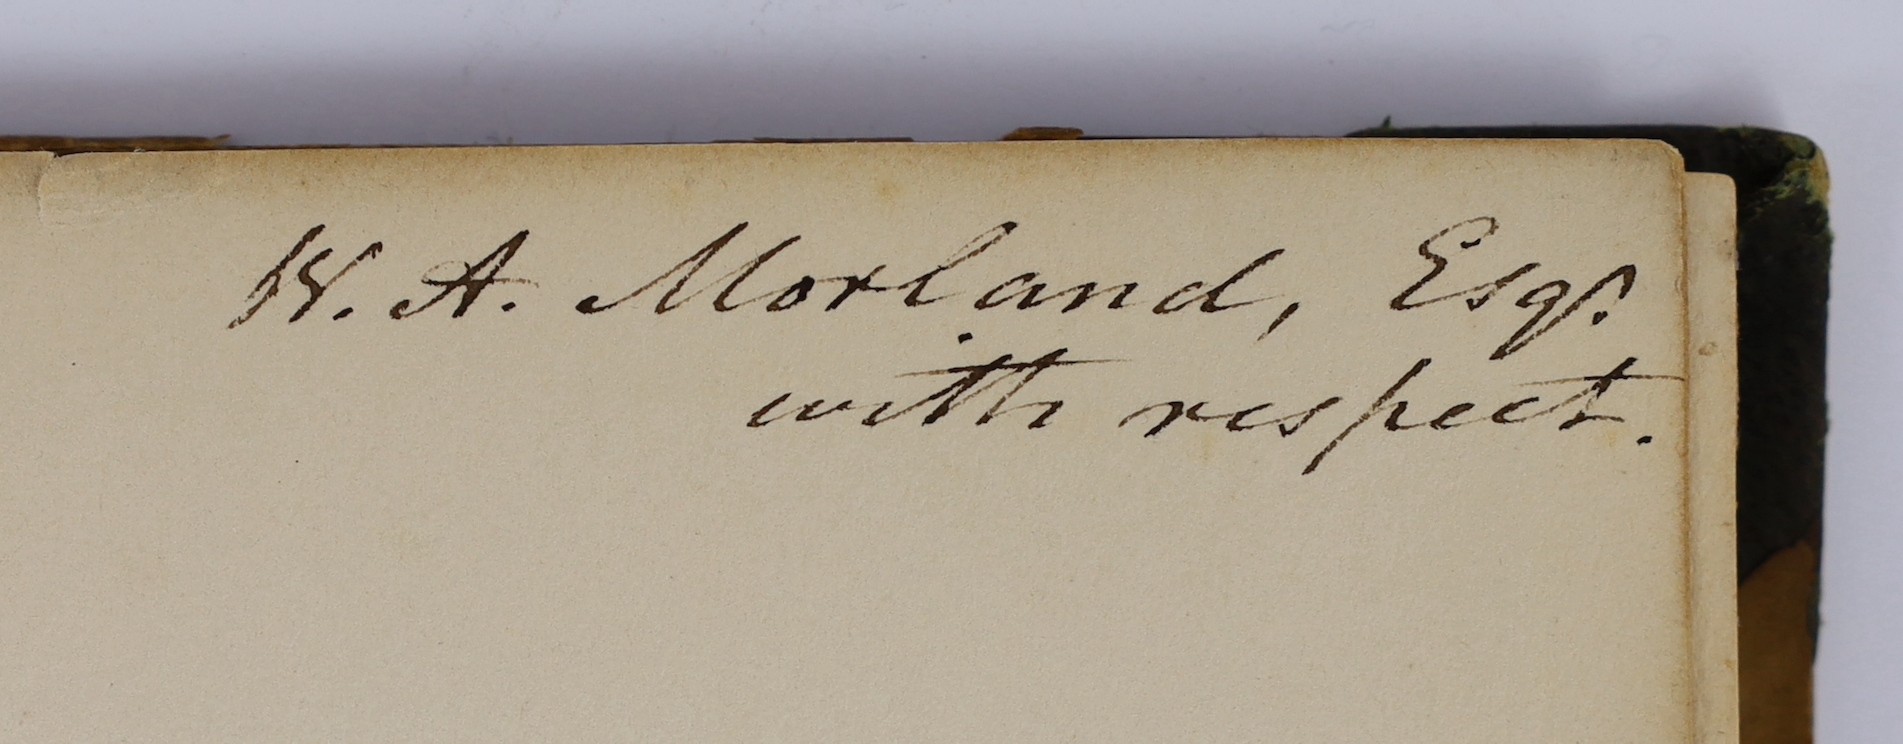 W. A. Morland, Esqr.
with respect.